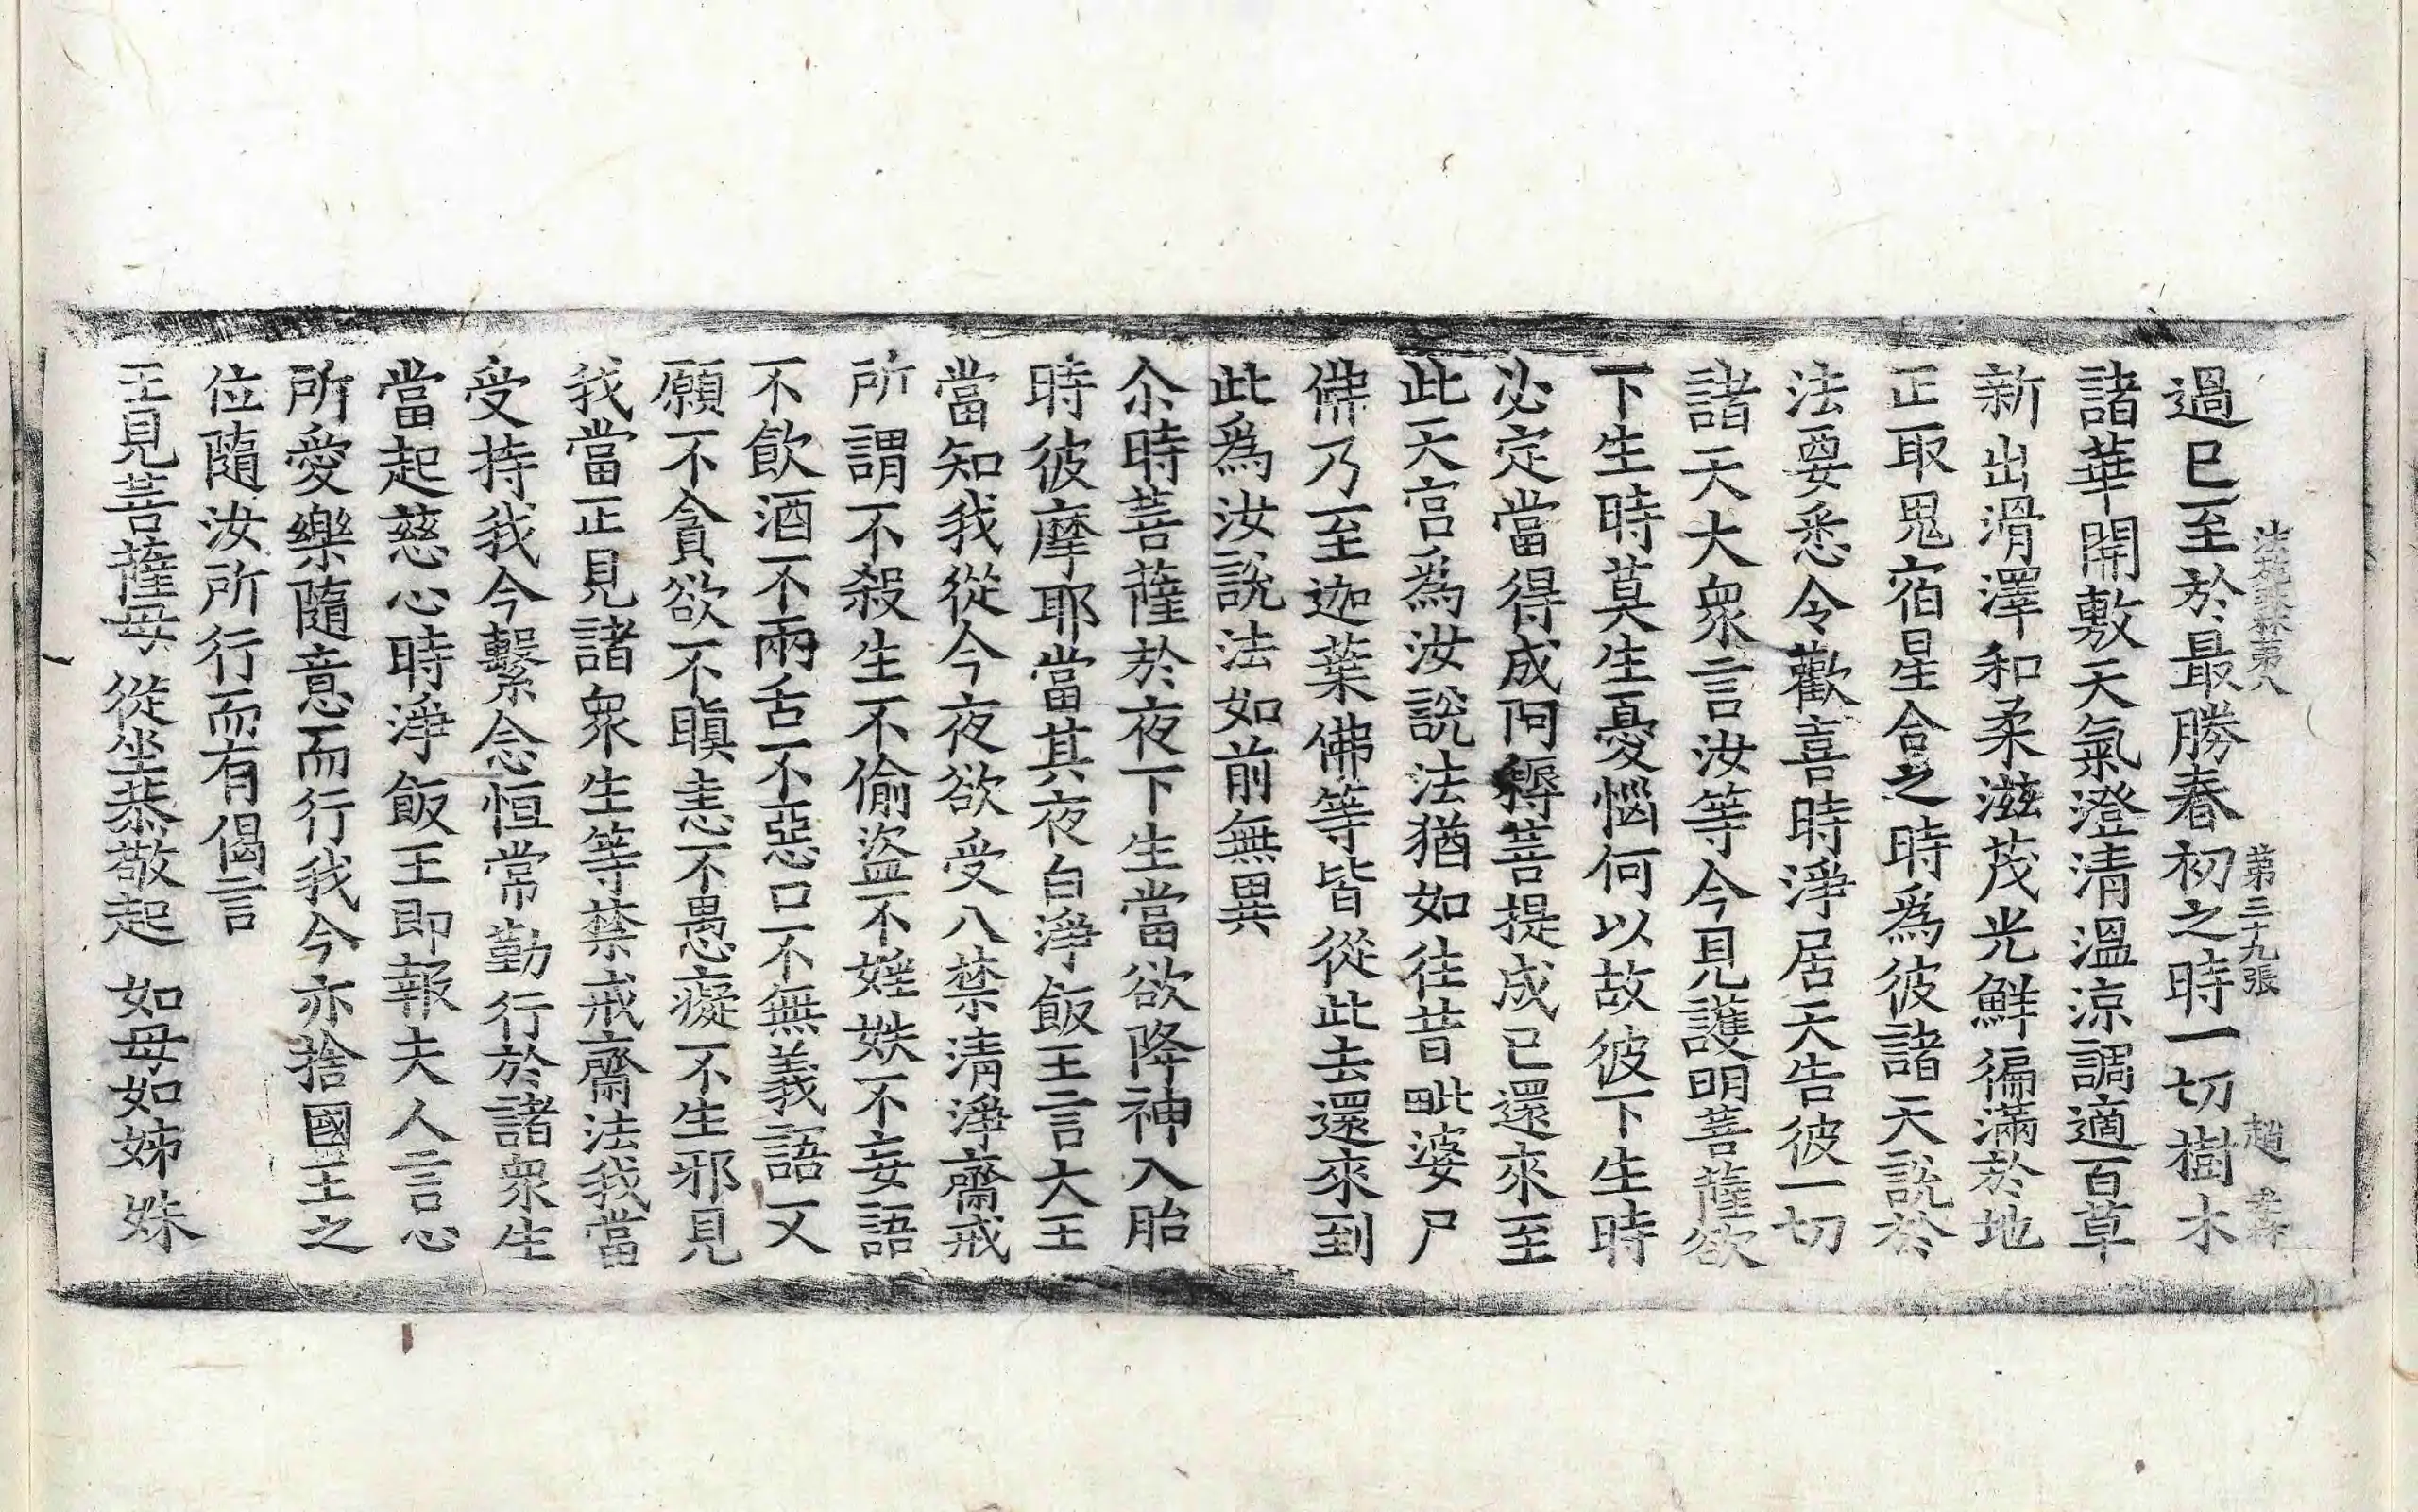 法苑珠林第八 第二十九張 趙
過已至於最勝春初之時一切樹木
諸華開敷天氣澄清溫涼調適百草
新出滑澤和柔滋茂光鮮徧滿於地
正取鬼宿星合之時爲彼諸天說於
法要悉令歡喜時淨居天告彼一切
諸天大衆言汝等今見護明菩薩欲
下生時莫生憂惱何以故彼下生時
必定當得成阿耨菩提成已還來至
此天宮爲汝說法猶如往昔毗婆尸
佛乃至迦葉佛等皆從此去還來到
此爲汝說法如前無異
尒時菩薩於夜下生當欲降神入胎
時彼摩耶當其夜白淨飯王言大王
當知我從今夜欲受八禁清淨齋戒
所謂不殺生不偷盜不婬妷不妄語
不飲酒不兩舌不惡口不無義語又
願不貪欲不瞋恚不愚癡不生邪見
我當正見諸衆生等禁戒齋法我當
受持我今繫念恒常勤行於諸衆生
當起慈心時淨飯王即報夫人言心
所愛樂隨意而行我今亦捨國王之
位隨汝所行而有偈言
王見菩薩母 從坐恭敬起 如母如姊妹